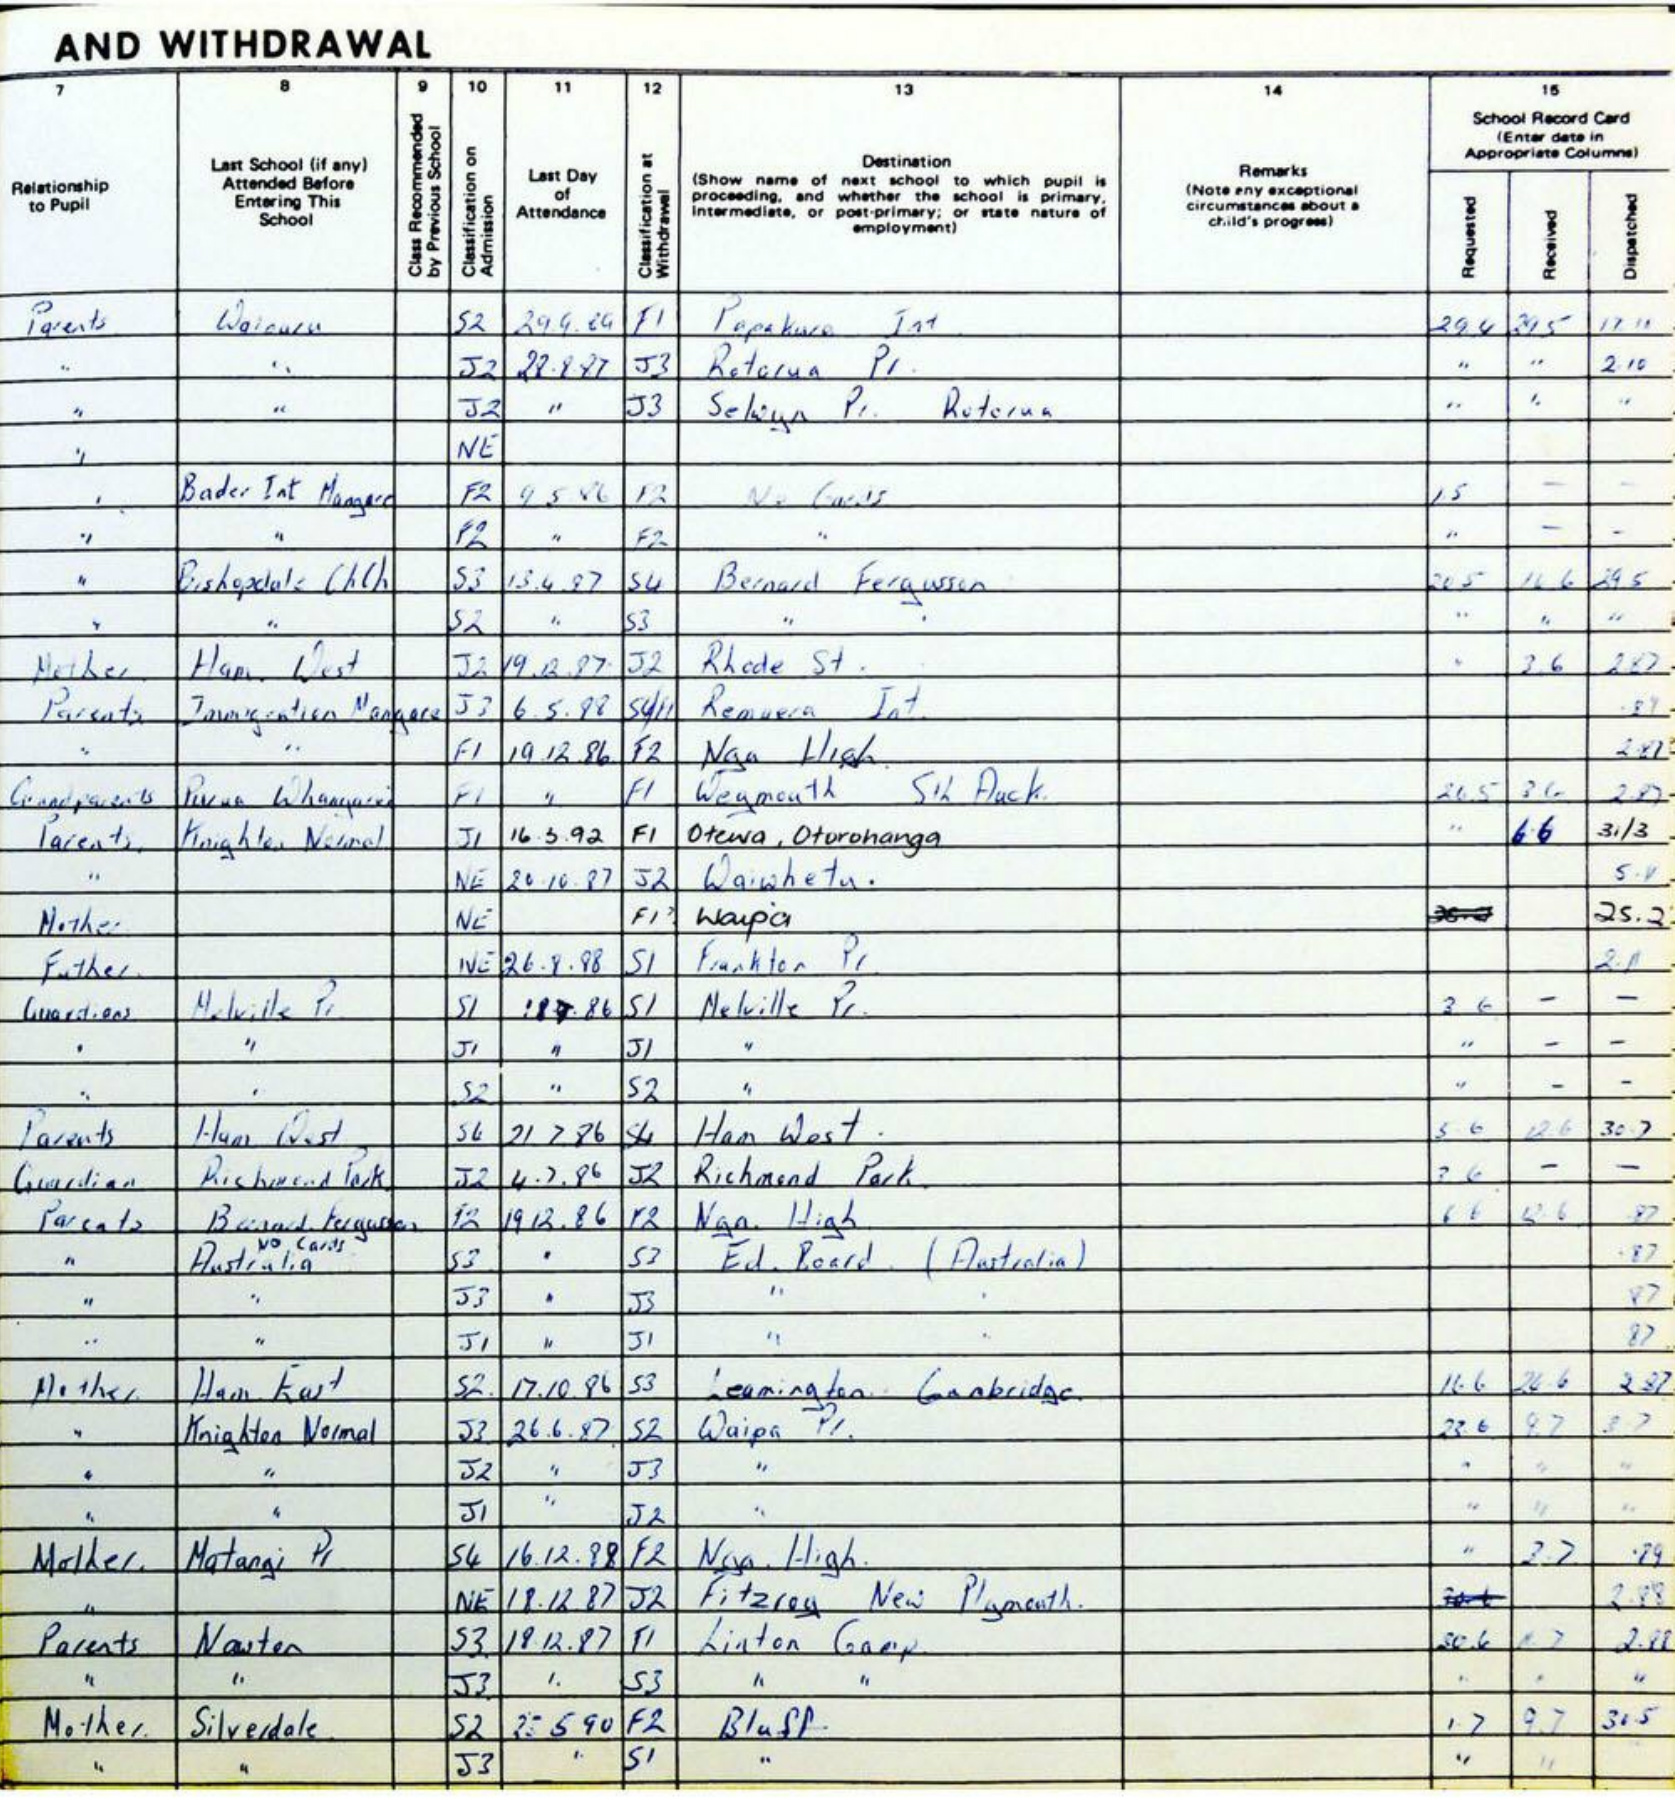 AND WITHDRAWAL
7 8 9 10 11 12 13 14 15
Relationship to Pupil
Last School (if any) Attended Before Entering This School
Class Recommended by Previous School
Classification on Admission
Last Day of Attendance
Classification at Withdrawal
Destination (Show name of next school to which pupil is proceeding, and whether the school is primary, intermediate, or post-primary; or state nature of employment)
Remarks (Note any exceptional circumstances about a child's progress)
School Record Card (Enter date in Appropriate Columns)
Requested Received Dispatched
Parents Waiouru S2 F1 Papakura Int 29.4 29.5
" " J2 J3 Rotorua Pr. " " 2.10
" " J2 " J3 Selwyn Pr. Rotorua " " "
" NE
" Bader Int Mangere F2 9.5.86 F2 No Cards 1.5 — —
" " F2 " F2 " " — —
" Bishopdale ChCh S3 13.4.87 S4 Bernard Fergusson 20.5 29.5
" " S2 " S3 " " " " "
Mother Ham. West J2 19.12.87 J2 Rhode St. " 3.6 2.87
Parents Immigration Mangere J3 6.5.88 S4/F1 Remuera Int.
" " F1 19.12.86 F2 Nga High 2.87
Grandparents Purua Whangarei F1 " F1 Weymouth Sth Auck. 26.5 3.6 2.87
Parents Knighton Normal J1 16.3.92 F1 Otewa, Otorohanga " 6.6 31/3
" NE 20.10.87 J2 Waiwhetu.
Mother NE F1 Waipa 25.2
Father NE S1 Frankton Pr
Guardians Melville Pr S1 S1 Melville Pr. 3.6 — —
" " J1 " J1 " " — —
" " S2 " S2 " " — —
Parents Ham West S4 21.7.86 S4 Ham West. 5.6 12.6 30.7
Guardian Richmond Park J2 4.7.86 J2 Richmond Park 3.6 — —
Parents Bernard Fergusson F2 19.12.86 F2 Nga. High 6.6 87
NO Cards
" Australia S3 " S3 Ed. Board (Australia) .87
" " J3 " J3 " " 87
" " J1 " J1 " " 87
Mother Ham East S2. 17.10.86 S3 Leamington Cambridge 16.6 26.6 2.87
" Knighton Normal J3 26.6.87 S2 Waipa Pr. 23.6 9.7 3.7
" " J2 " J3 " " " "
" " J1 " J2 " " " "
Mother. Matangi Pr S4 16.12.88 F2 Nga. High. " 2.7 .89
" NE 18.12.87 J2 Fitzroy New Plymouth. 2.88
Parents Nawton S3 18.12.87 F1 Linton Camp 30.6 2.88
" " J3 " S3 " " " " "
Mother. Silverdale S2 5 90 F2 Bluff 1.7 9.7 31.5
" " J3 " S1 " " "